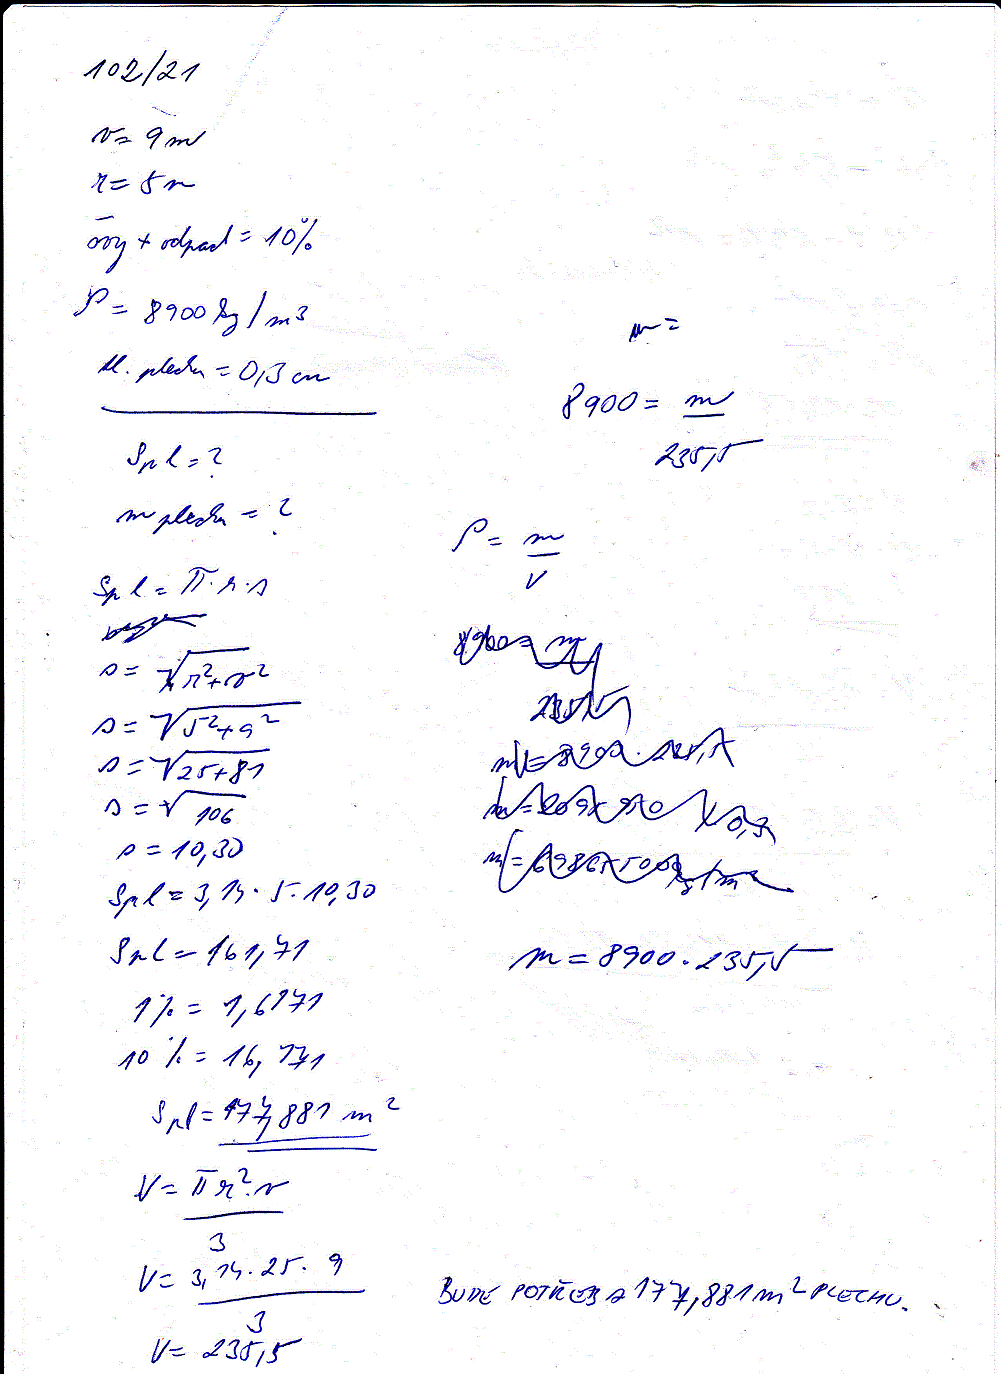 102/21
v = 9 m
r = 5 m
švy + odpad = 10%
ρ = 8900 kg/m3
tl. plechu = 0,3 cm
Spl = ?
m plechu = ?
Spl = π · r · s
s = √r²+v²
s = √5²+9²
s = √25+81
s = √106
s = 10,30
Spl = 3,14 · 5 · 10,30
Spl = 161,71
1% = 1,6171
10% = 16,171
Spl = 177,881 m²
V = πr²·v
3
V = 3,14 · 25 · 9
3
V = 235,5
m =
8900 = m
235,5
ρ = m
V
8900 = m
235,5
m = 8900 · 235,5
BUDE POTŘEBA 177,881 m² PLECHU.